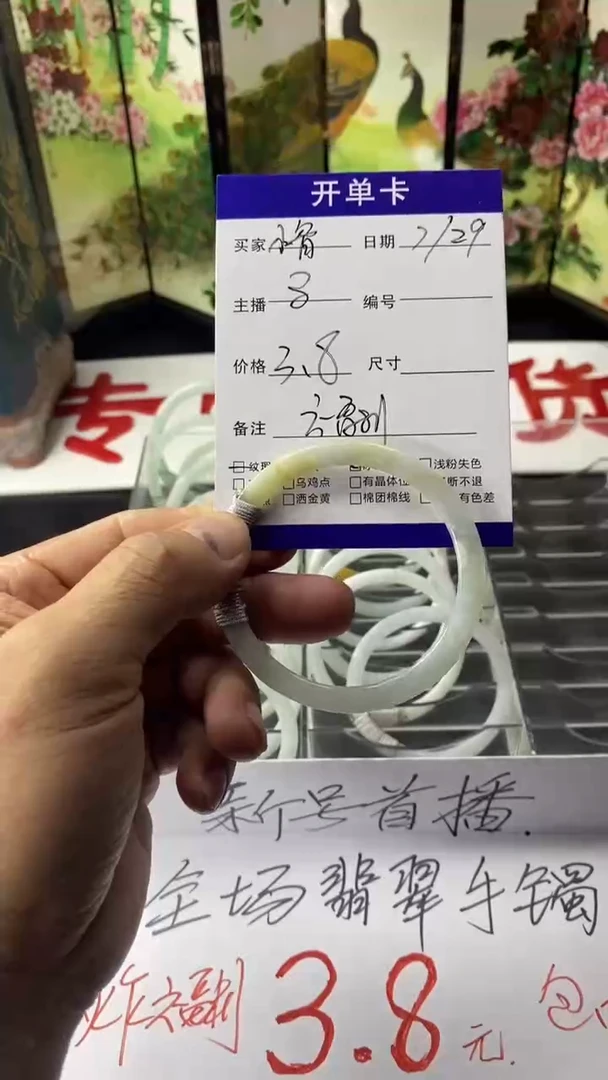 开单卡
买家 日期 7/29
主播 3 编号
价格 3.8 尺寸
备注 六福利
浅粉失色
乌鸡点 有晶体位 断不退
洒金黄 棉团棉线 有色差
专 货
新个号首播.
全场翡翠手镯
炸福利 3.8元. 包